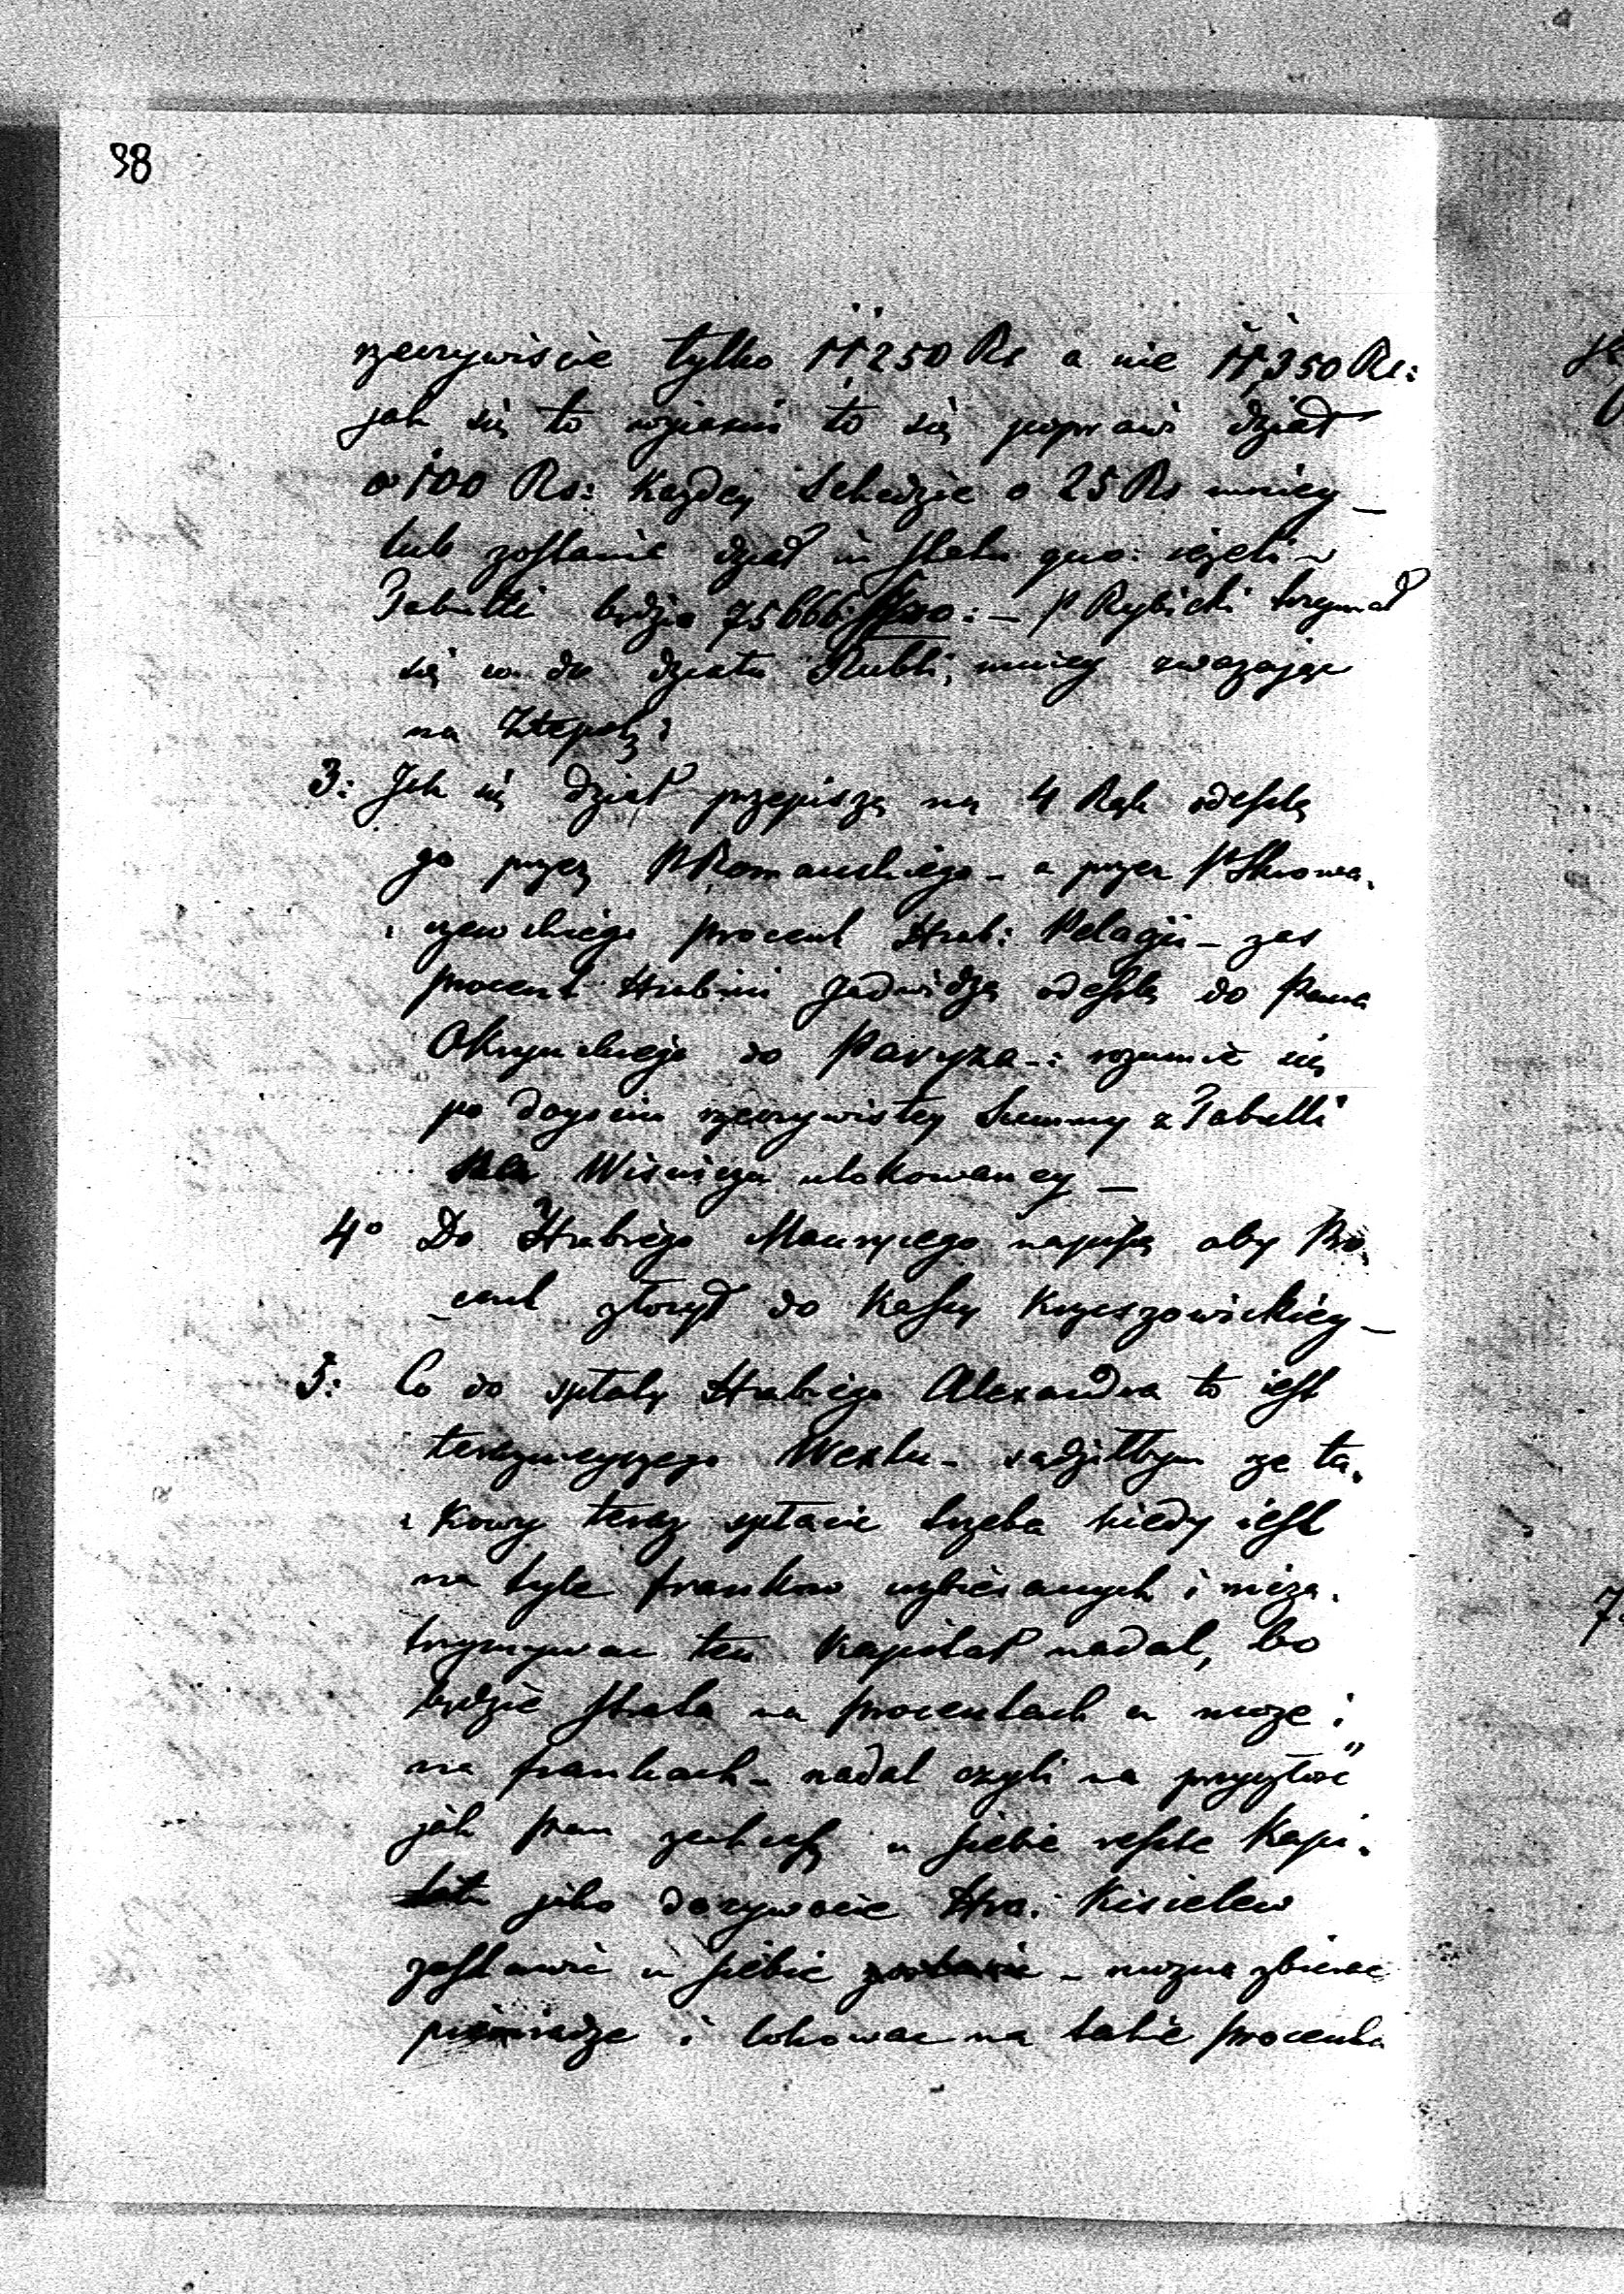 98
rzeczywiście tylko 11,250 Rs a nie 11,350 Rs:
jak się to wyiasni to się poprawi dział
o 100 Rs: każdey Schedzie o 25 Rs mniey _
lub zostanie dział in statu quo: ieżeli w
Tabulli będzie 75666 : — P Rybicki trzymał
się co do działu Rubli, mniey zwazając
na Złtepol:
3: Jak się dział przepiszą na 4 Ręk odeszlę
go przez P Romanskiego – a przez P Skowa-
czewskiego procent Hrab: Pelagii – zas
procent Hrabini Jadwidzę odeszlę do Pana
Okryńskiego do Paryza –: rozumie się
po doyściu rzeczywistey Summy z Tabulli
Wiśnicza ulokowaney _
4° Do Hrabiego Maurycego napiszę aby Pro-
cent złozył do Kassy Krzeszowickiéy _
5: Co do spłaty Hrabiego Alexandra to iest
teraznieyszego Wexlu – sądziłbym ze ta-
kowy teraz spłacic trzeba kiedy iest
na tyle frankow uzbieranych i nieza-
trzymywac ten Kapitał nadal, bo
będzie strata na procentach a moze i
na frankach – nadal czyli na przyszłość
jak Pan zechcesz u siebie resztę Kapi-
jako dozywocie Hra: Kisielew
zostawic u siebie – mozna zbierac
pieniadze i lokowac na takie procenta